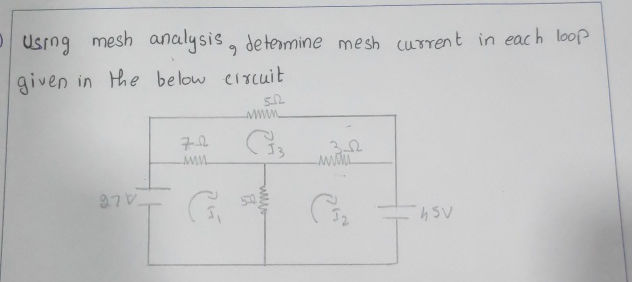 ) Using mesh analysis, determine mesh current in each loop
given in the below circuit
5Ω
7Ω
I3
3Ω
27V
I1
5Ω
I2
45V